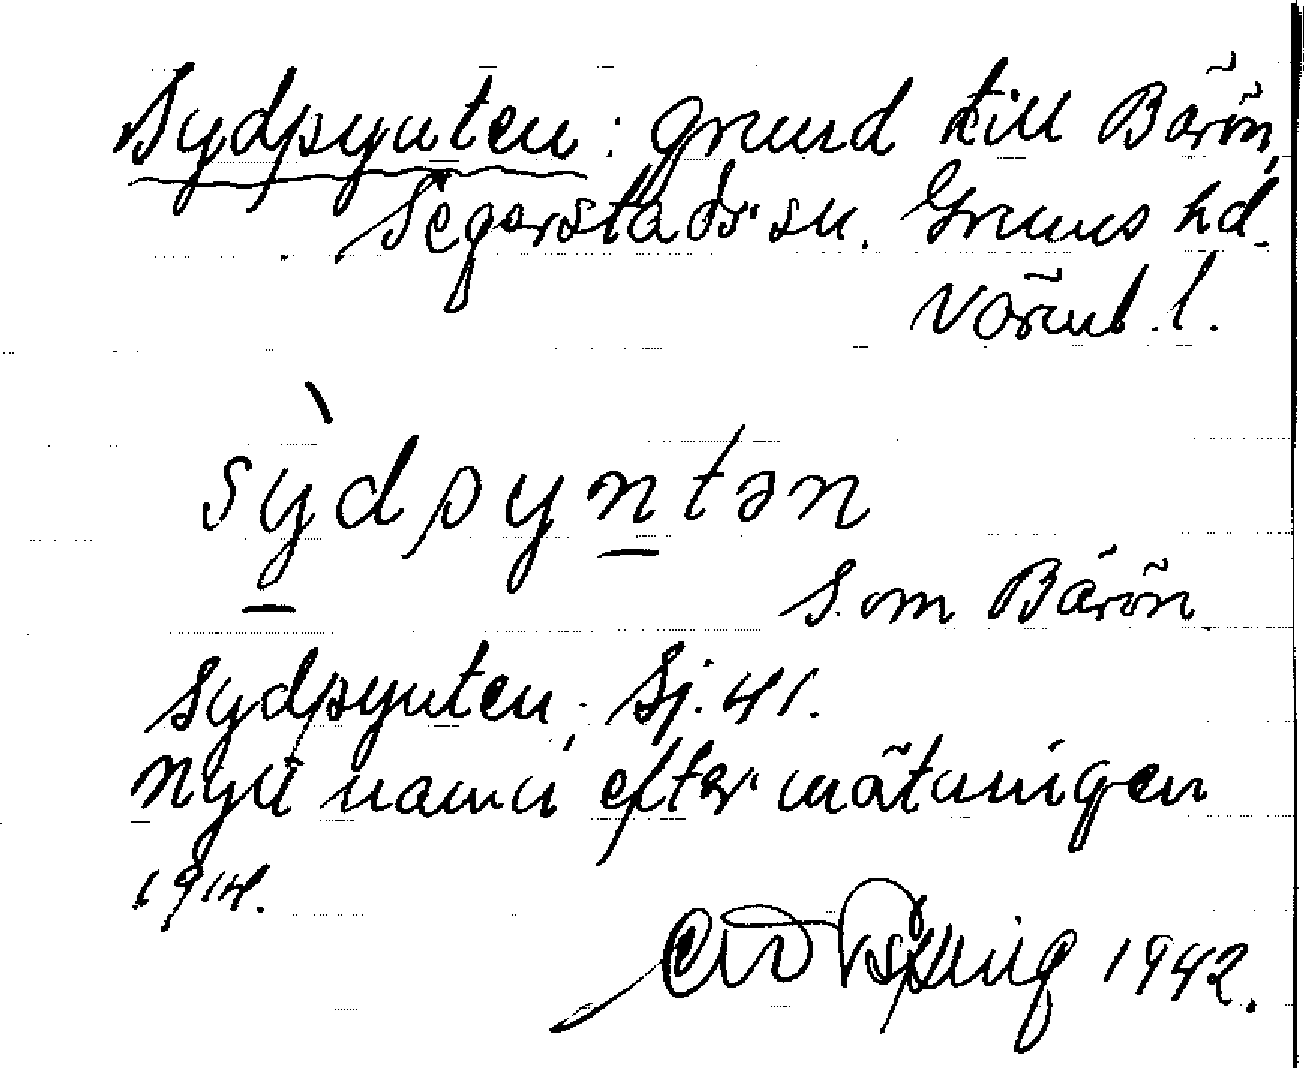 Sydpynten: grund till Bärön,
Segerstads sn. Grums hd.
Värml. l.
sỳdpyntən
S. om Bärön.
Sydpynten; Sj. 41.
Nytt namn efter mätningen
1914.
1942.